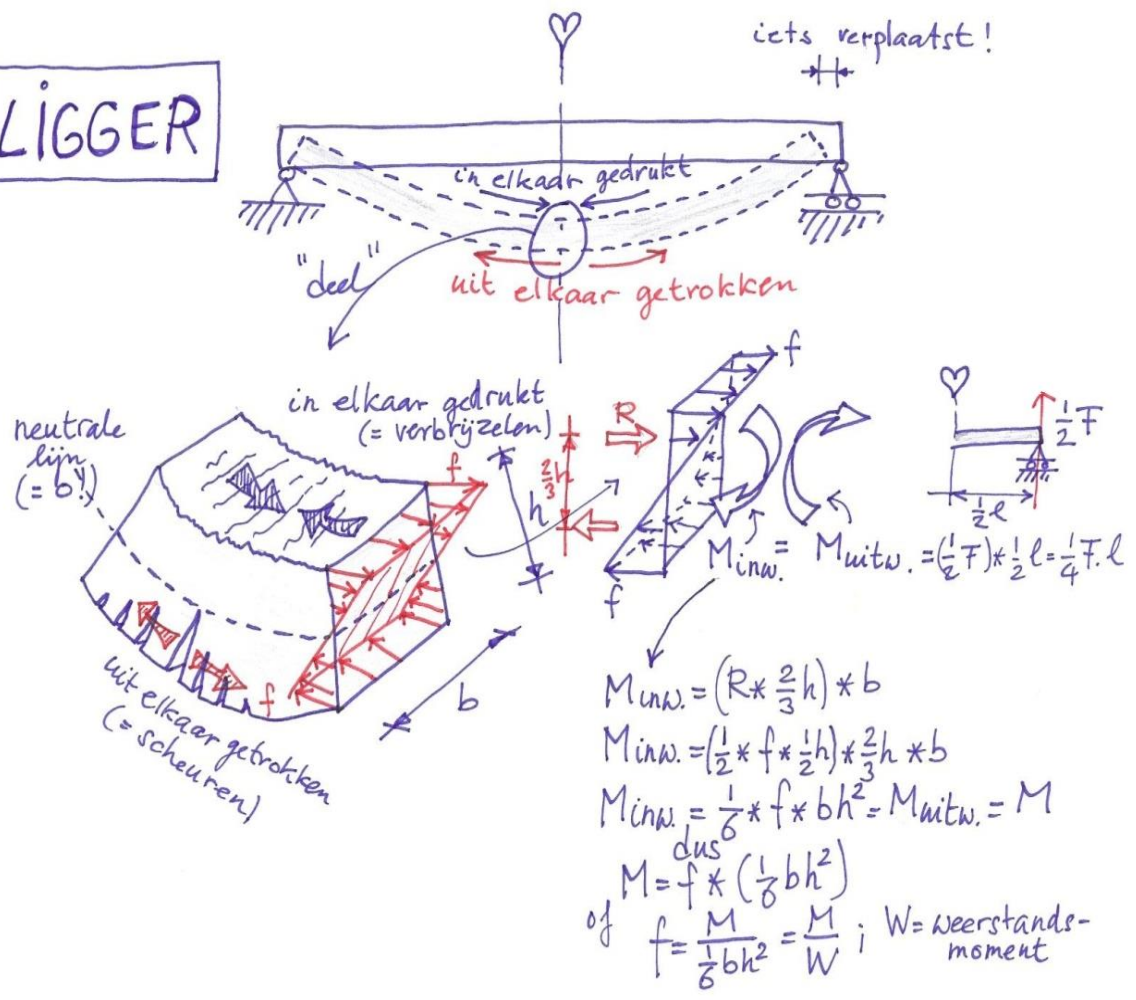 LIGGER
iets verplaatst!
in elkaar gedrukt
"deel"
uit elkaar getrokken
in elkaar gedrukt
(= verbrijzelen)
neutrale
lijn
(= σ!)
f
h
2/3 h
R
f
f
1/2 F
1/2 l
M inw. = M uitw. = (1/2 F) * 1/2 l = 1/4 F.l
f
b
uit elkaar getrokken
(= scheuren)
M inw. = (R * 2/3 h) * b
M inw. = (1/2 * f * 1/2 h) * 2/3 h * b
M inw. = 1/6 * f * bh² = M uitw. = M
dus
M = f * (1/6 bh²)
of f = M / (1/6 bh²) = M/W ; W = weerstands-
moment